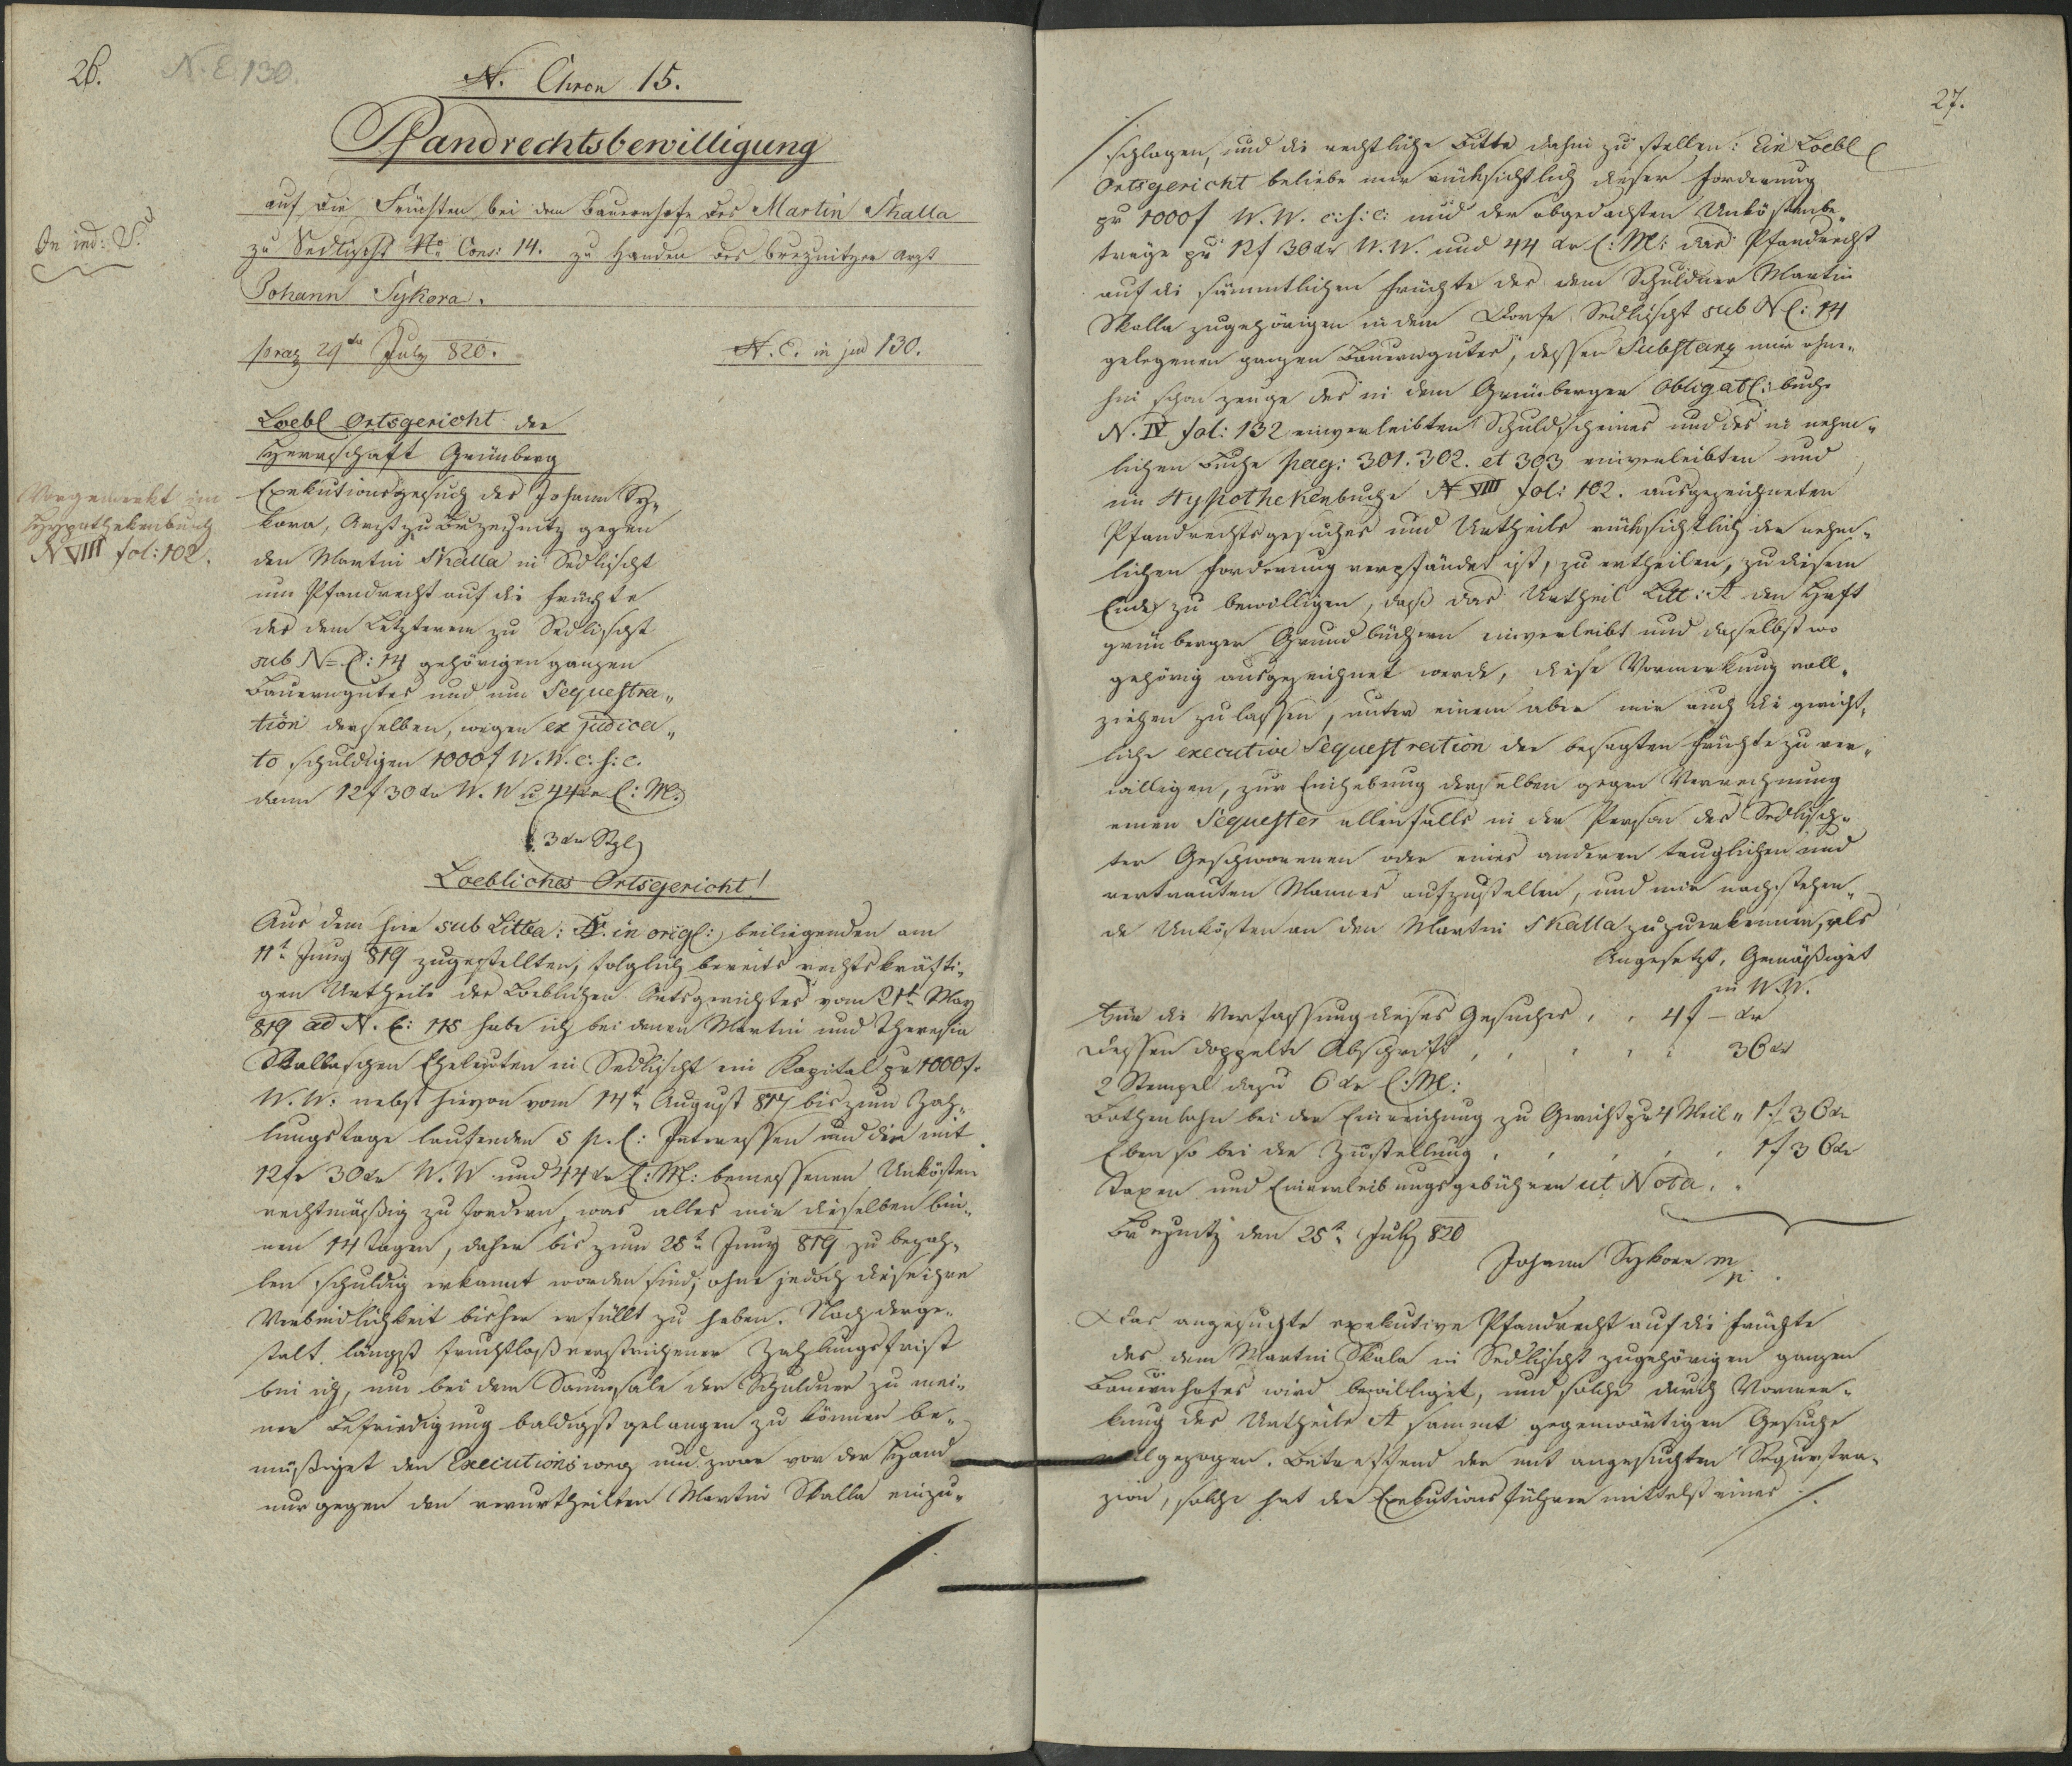 26.
N. E. 130.
N. Chron 15.
Pfandrechtsbewilligung
auf die Früchten bei dem Bauernhofe des Martin Skalla
zu Sedlischt No Cons: 14. zu Handen des breznitzer Arzt
Johann Sykora.
In ind: S.
praes 29ten July 820.
N. E. in jud 130.
Loebl Ortsgericht der
Herrschaft Grünberg
Exekutionsgesuch des Johann Sy„
kora, Arzt zu Brzeznitz gegen
den Martin Skalla in Sedlischt
um Pfandrecht auf die Früchte
des dem Letzterem zu Sedlischt
sub N= C: 14 gehörigen ganzen
Bauerngutes und um Sequestra„
tion derselben, wegen ex judica„
to schuldigen 1000f W. W. c. s: c.
dann 12f 30kr W. W u 44kr C: M:
Vorgemerkt im
Hypothekenbuch
N VIII fol: 102.
3 kr Stpl
Loebliches Ortsgericht!
Aus dem hier sub Littra: A. in origl: beiliegenden am
11t Juny 819 zugestellten, folglich bereits rechtskräfti„
gen Urtheile des Loeblichen Ortsgerichtes vom 21t May
819 ad N. E: 115 habe ich bei denen Martin und Theresia
Skallaschen Eheleuten in Sedlischt ein Kapital pr 1000f.
W. W: nebst hievon vom 14t August 817 bis zum Zah„
lungstage laufenden 5 p. C: Interessen und die mit
12fr 30kr W. W und 44 kr C: M: bemessenen Unkösten
rechtmäßig zu fordern, was alles mir dieselben bin„
nen 14 Tagen, daher bis zum 25t Juny 819 zu bezah„
len schuldig erkannt worden sind, ohne jedoch diese ihre
Verbindlichkeit bisher erfüllt zu haben. Nach derge„
stalt längst fruchtloß verstrichener Zahlungsfrist
bin ich, um bei dem Saumsale der Schuldner zu mei„
ner Befriedigung baldigst gelangen zu können be„
müßiget den Executionsweg und zwar vor der Hand
nur gegen den verurtheilten Martin Skalla einzu„
27.
schlagen, und die rechtliche Bitte dahin zu stellen: Ein Loebl
Ortsgericht beliebe mir rücksichtlich dieser Forderung
pr 1000f W. W. c: s: c: und der obgedachten Unköstenbe„
träge pr 12f 30kr W. W. und 44 kr C: M: das Pfandrecht
auf die sämmtlichen Früchte des dem Schuldner Martin
Skalla zugehörigen in dem Dorfe Sedlischt sub N C: 14
gelegenen ganzen Bauerngutes, dessen Substanz mir ohne„
hin schon zeuge des in dem Grünberger Obligatl: buche
N. IV fol: 132 einverleibten Schuldscheines und des in nehm„
lichen Buche pag: 301. 302. et 303 einverleibten und
im Hypothekenbuche N VIII fol: 102. ausgezeichneten
Pfandrechtsgesuches und Urtheils rücksichtlich der nehm„
lichen Forderung verpfändet ist, zu ertheilen, zu diesem
Ende zu bewilligen, daß das Urtheil Litt: A den Hft
grünberger Grundbüchern einverleibt und daselbst wo
gehörig ausgezeichnet werde, diese Vormerkung voll„
ziehen zu lassen, unter einem aber mir auch die gericht„
liche executive Sequestration der besagten Früchte zu ver„
willigen, zur Einhebung derselben gegen Verrechnung
einen Sequester allenfalls in der Person des Sedlisch„
ter Geschworenen oder eines anderen tauglichen und
vertrauten Mannes aufzustellen, und mir nachstehen„
de Unkösten an den Martin Skalla zuzuerkennen, als
Angesetzt, Gemäßiget
in W. W.
Für die Verfassung dieses Gesuches . . 4f – kr
dessen doppelte Abschrift , , , , , 36 kr
2 Stempel dazu 6 kr C: M:
Bothenlohn bei der Einreichung zu Gericht pr 4 Meil „ 1f 36kr
Eben so bei der Zustellung , , , , , 1f 36kr
Taxen und Einverleibungsgebühren ut Nota . „
Brzeznitz den 25t July 820
Johann Sykora m/p.
Das angesuchte exekutive Pfandrecht auf die Früchte
des dem Martin Skala in Sedlischt zugehörigen ganzen
Bauernhofes wird bewilliget, und solche durch Vormer„
kung des Urtheils A sammt gegenwärtigen Gesuche
vollgezogen. Betreffend der mit angesuchten Sequestra„
zion, solche hat der Exekutionsführer mittelst eines ./.